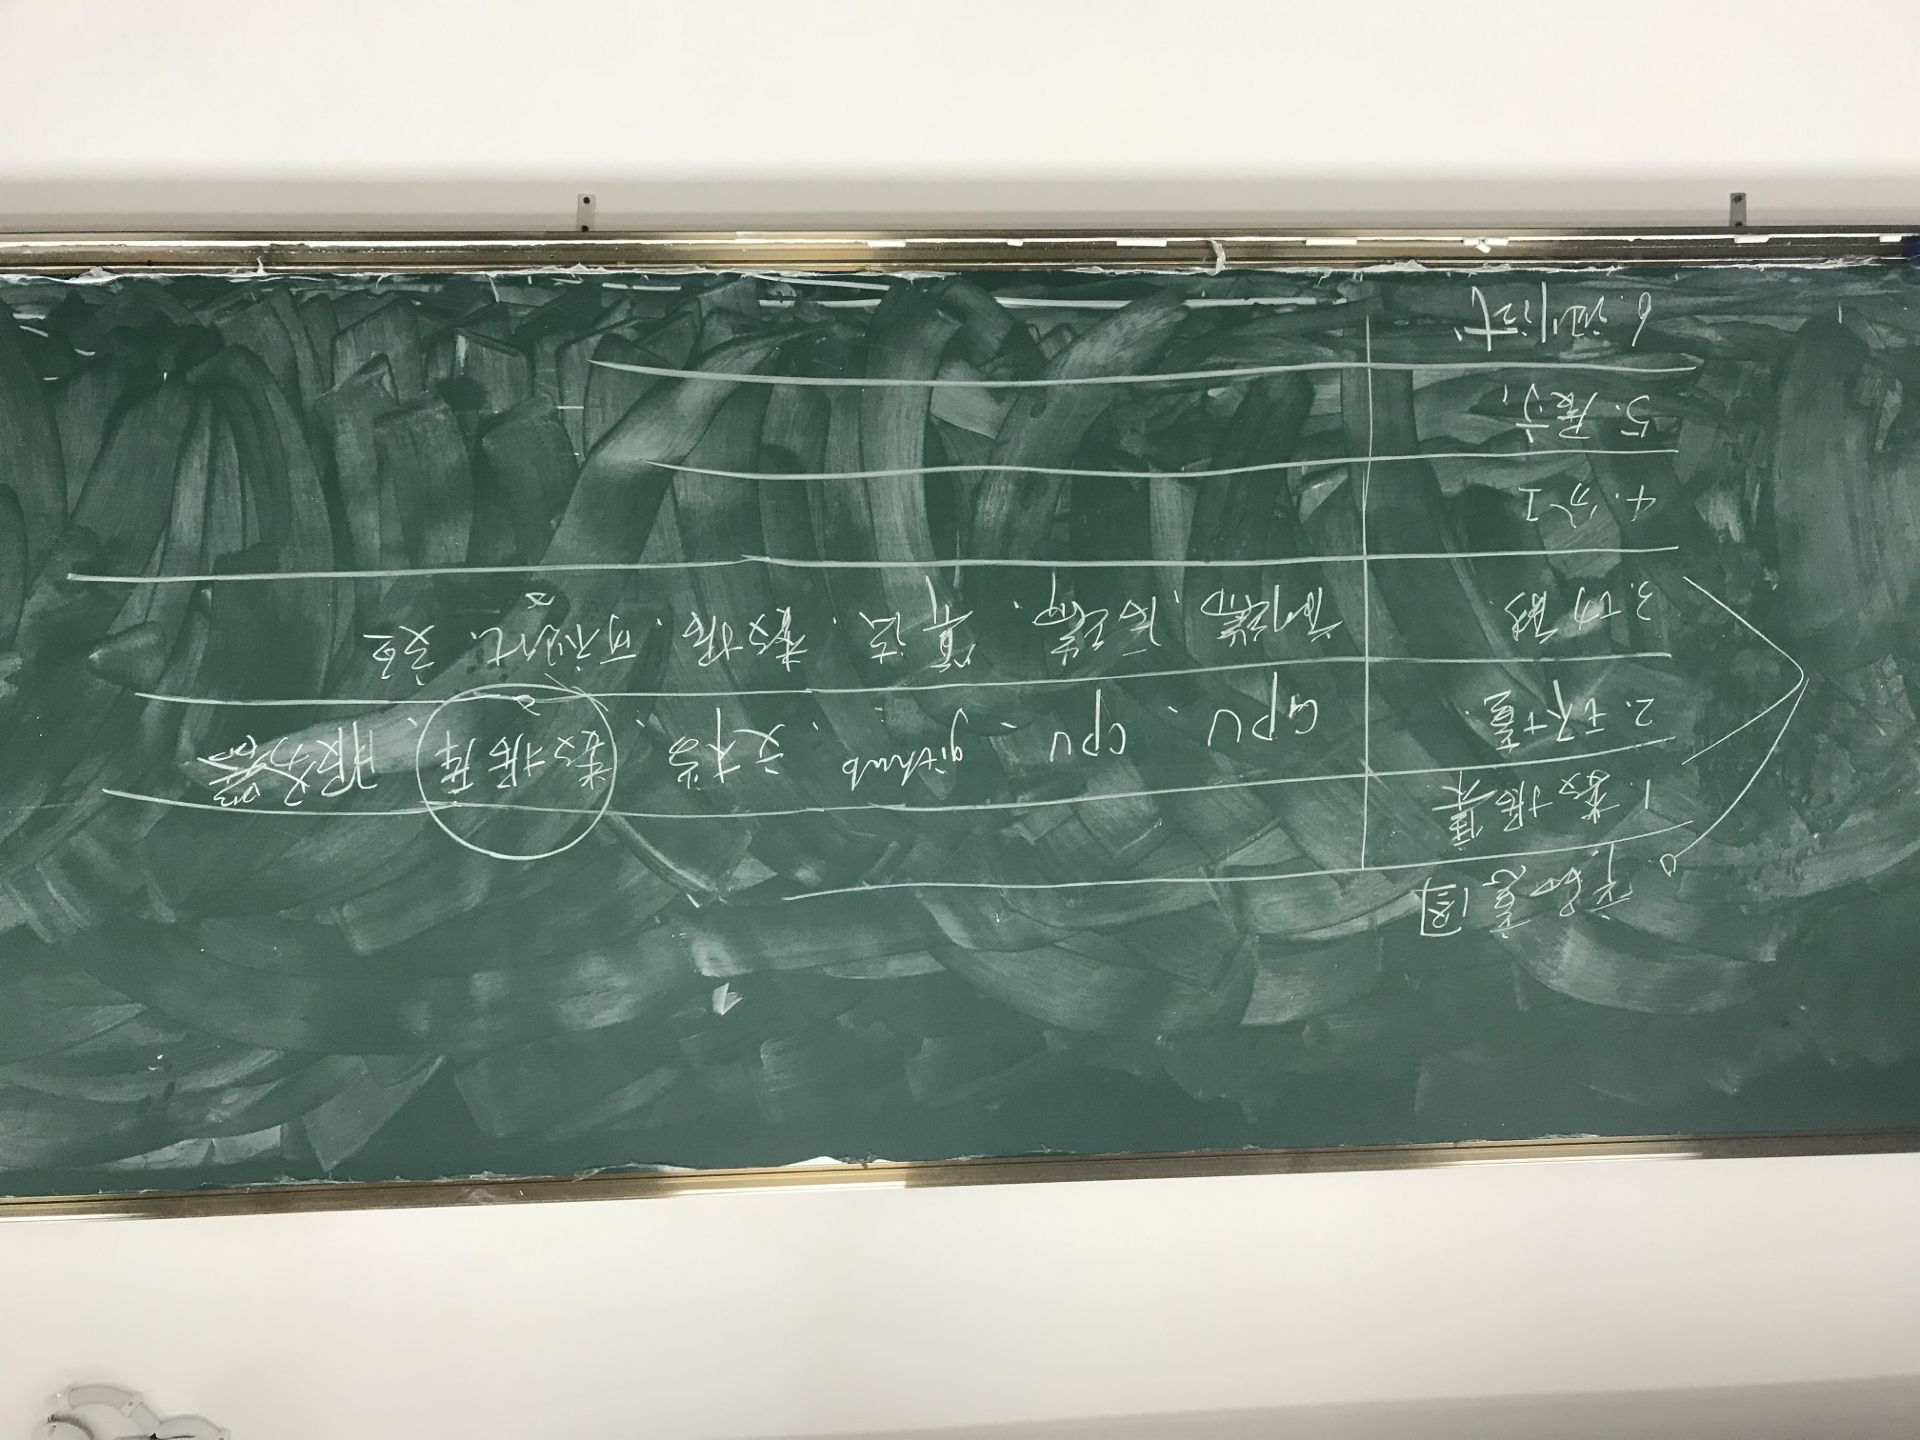 0. 产品意图
1. 数据集
2. 环境.
GPU、CPU、github、文档、数据库、服务器
3. 功能.
前端、后端、算法、数据、可视化、交互
4. 分工
5. 展示,
6. 测试